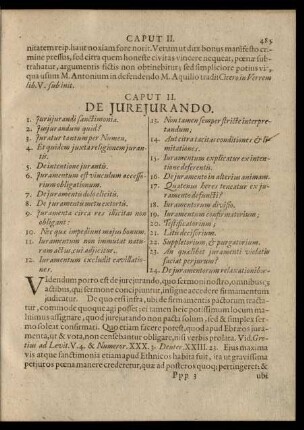 CAPUT II. 485
nitatem reip. haut noxiam fore norit. Verum ut dux bonus manifesto crimine
pressus, sed citra quem honeste civitas vincere nequeat, pœnæ subtrahatur,
argumentis fictis non obtinebitur; sed simpliciore potius vi,
qua usum M. Antonium in defendendo M. Aquilio tradit Cicero in Verrem
lib. V. sub init.
CAPUT II.
DE JUREJURANDO.
1. Jurisjurandi sanctimonia.
2. Jusjurandum quid?
3. Juratur tantum per Nomen,
4. Et quidem juxta religionem jurantis.
5. De intentione jurantis.
6. Juramentum est vinculum accessorium
obligationum.
7. De juramento dolo elicito.
8. De juramento metu extorto.
9. Juramenta circa res illicitas non
obligant:
10. Nec quæ impediunt majus bonum.
11. Iuramentum non immutat naturam
actus, cui adjicitur.
12. Iuramentum excludit cavillationes.
13. Non tamen semper stricte interpretandum,
14. Aut citra tacitas conditiones & limitationes.
15. Iuramentum explicatur ex intentione
deferentis.
16. De juramento in alterius animam.
17. Quatenus heres teneatur ex juramento
defuncti?
18. Iuramentorum divisio.
19. Iuramentum confirmatorium;
20. Testificatorium;
21. Litis decisorium.
22. Suppletorium, & purgatorium.
23. An quælibet juramenti violatio
faciat perjurum?
24. De juramentorum relaxationibus.
Videndum porro est de jurejurando, quo sermoni nostro, omnibusq;
actibus, qui sermone concipiuntur, insigne accedere firmamentum
judicatur. De quo etsi infra, ubi de firmamentis pactorum tractatur,
commode quoque agi posset: tamen heic potissimum locum maluimus
assignare, quod jurejurando non pacta solum, sed & simplex sermo
soleat confirmari. Quo etiam facere potest, quod apud Ebræos juramenta,
ut & vota, non censebantur obligare, nisi verbis prolata. Vid. Grotius
ad Levit. V. 4. & Numeror. XXX. 3. Deuter. XXIII. 23. Ejus maxima
vis atque sanctimonia etiam apud Ethnicos habita fuit, ita ut gravissimæ
perjuros pœnæ manere crederentur, quæ ad posteros quoq; pertingerent; &
Ppp 3 ubi